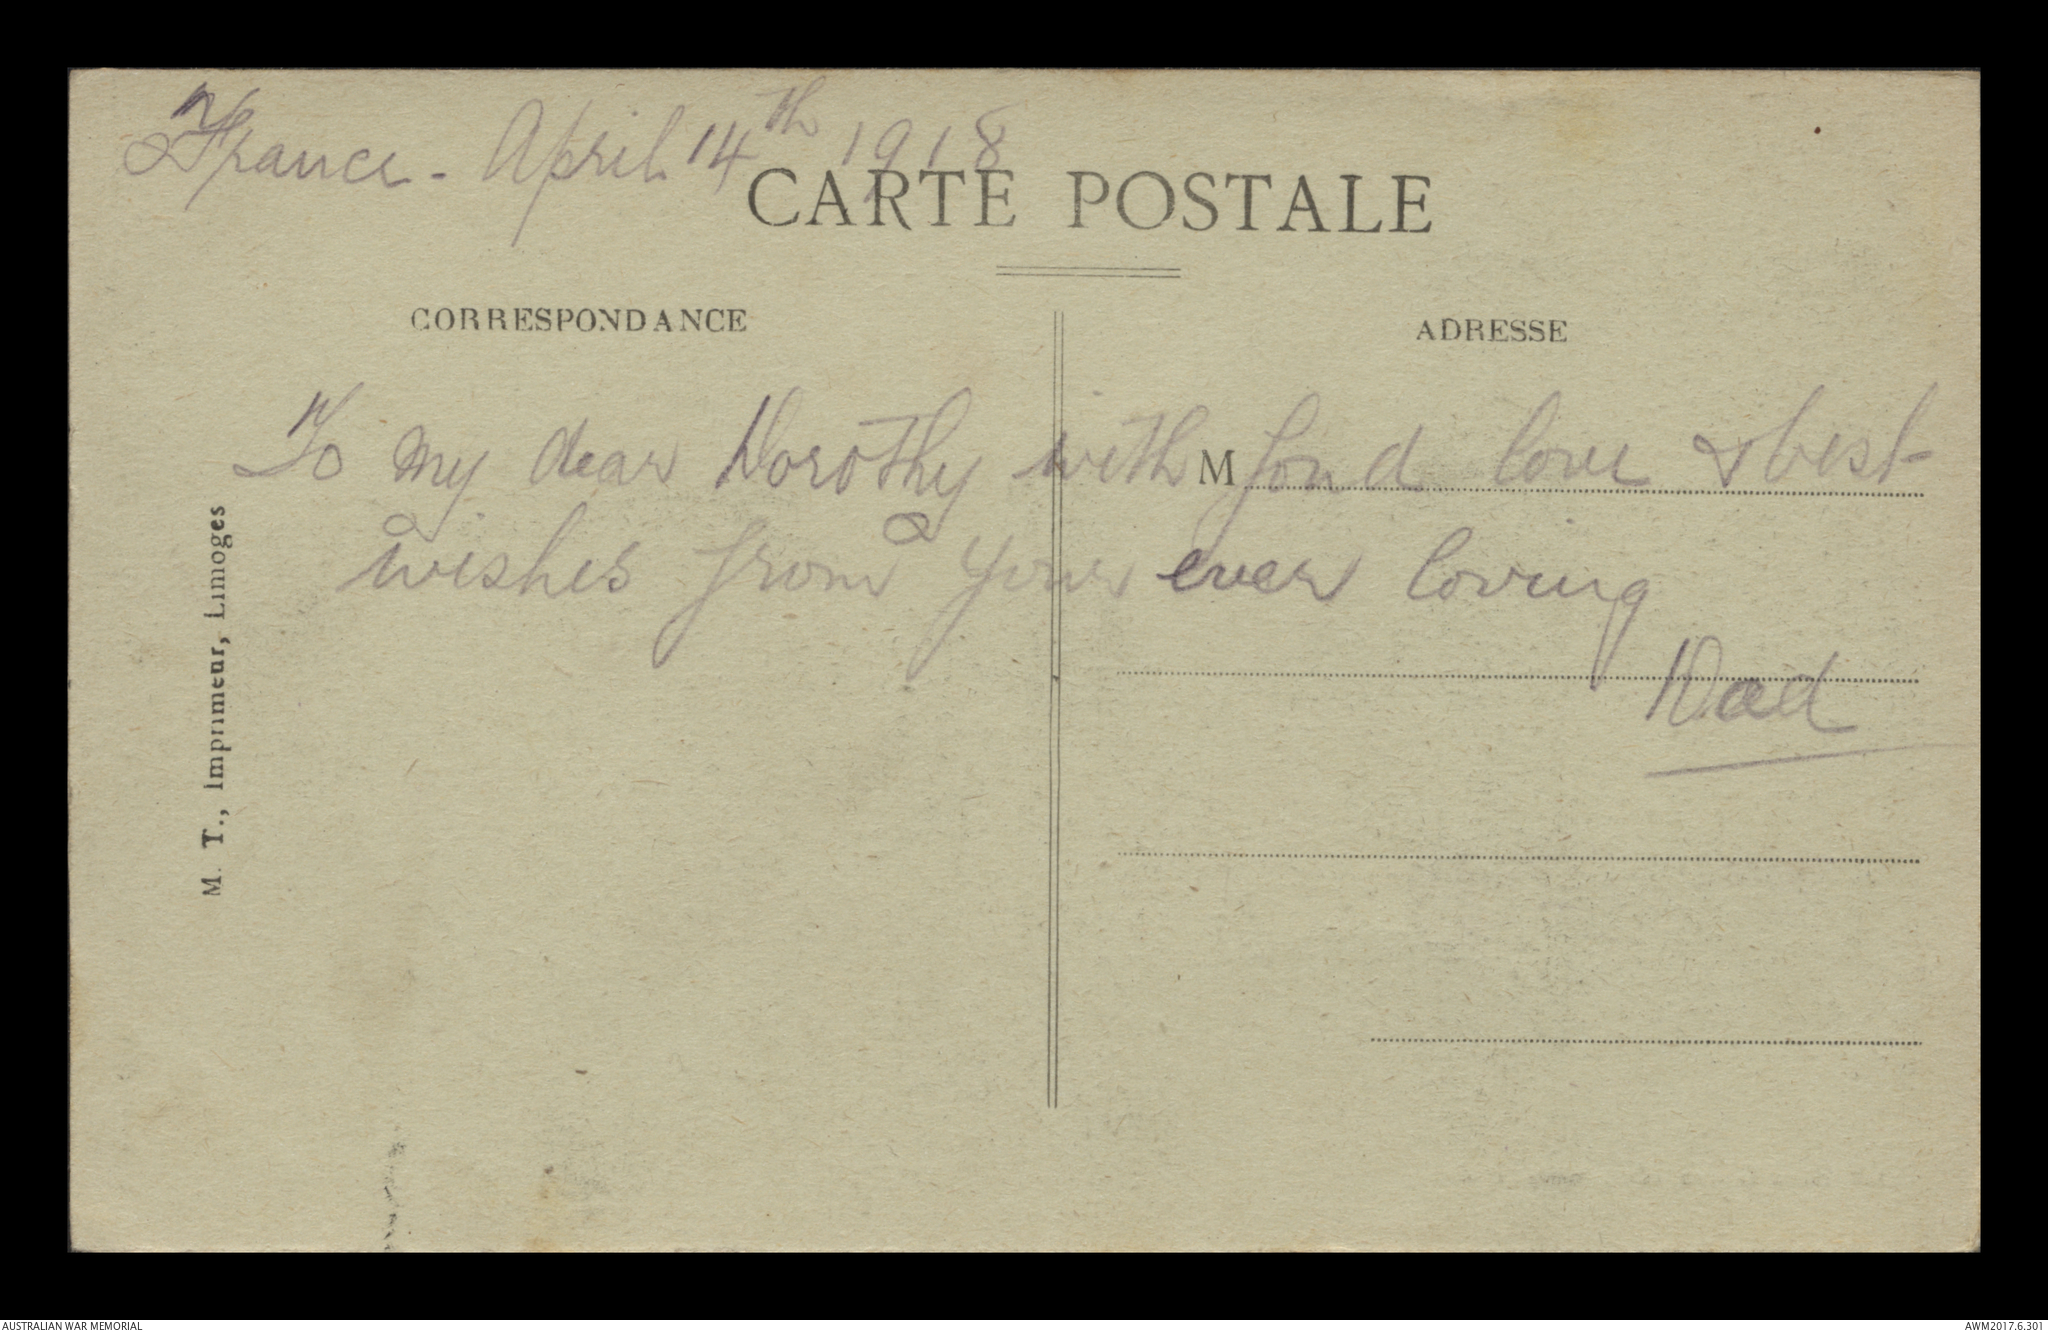 France - April 14th 1918
CARTE POSTALE
CORRESPONDANCE
ADRESSE
To my dear Dorothy with M fond love & best
wishes from your ever loving
Dad
M. T., Imprimeur, Limoges
AUSTRALIAN WAR MEMORIAL
AWM2017.6.301